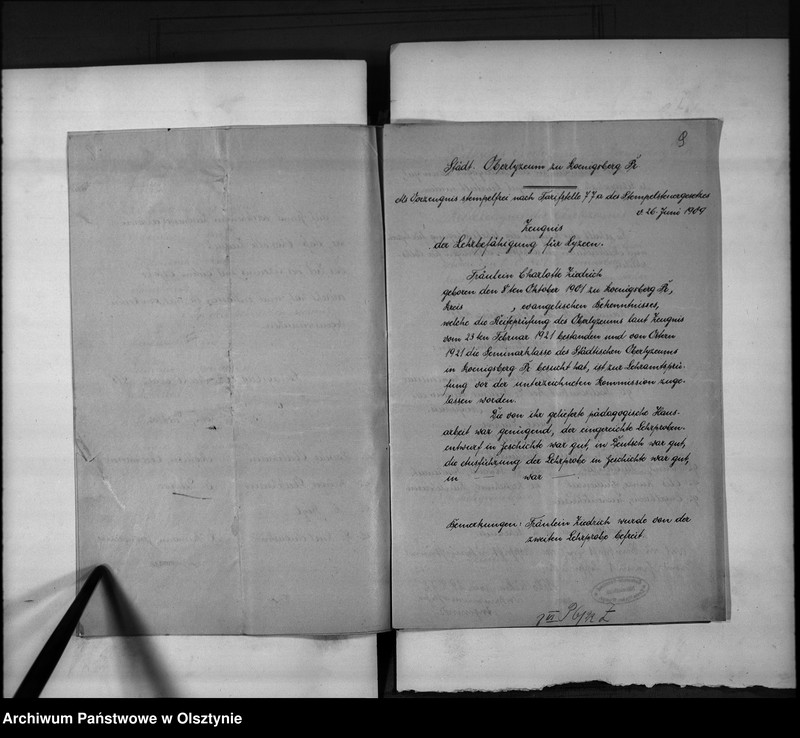 9
Städt. Oberlyzeum zu Koenigsberg Pr
Als Vorzeugnis stempelfrei nach Tarifstelle 77a des Stempelsteuergesetzes
v. 26. Juni 1909
Zeugnis
der Lehrbefähigung für Lyzeen.
Fräulein Charlotte Ziedrich
geboren den 8ten Oktober 1901 zu Koenigsberg Pr,
Kreis , evangelischen Bekenntnisses,
welche die Reifeprüfung des Oberlyzeums laut Zeugnis
vom 23ten Februar 1921 bestanden und von Ostern
1921 die Seminarklasse des Städtischen Oberlyzeums
in Koenigsberg Pr besucht hat, ist zur Lehramtsprü-
fung vor der unterzeichneten Kommission zuge-
lassen worden.
Die von ihr gelieferte pädagogische Haus-
arbeit war genügend, der eingereichte Lehrproben-
entwurf in Geschichte war gut, in Deutsch war gut,
die Ausführung der Lehrprobe in Geschichte war gut,
in — war —
Bemerkungen: Fräulein Ziedrich wurde von der
zweiten Lehrprobe befreit
Archiwum Państwowe w Olsztynie